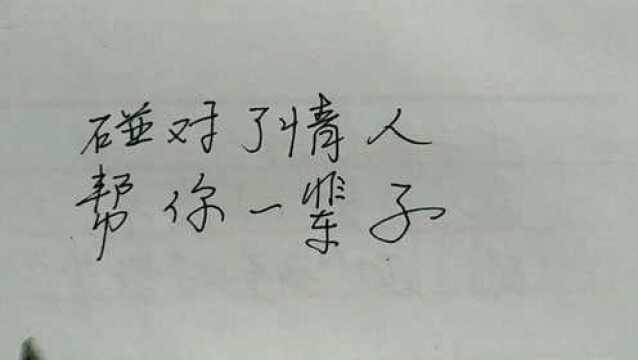 碰对了情人
帮你一辈子